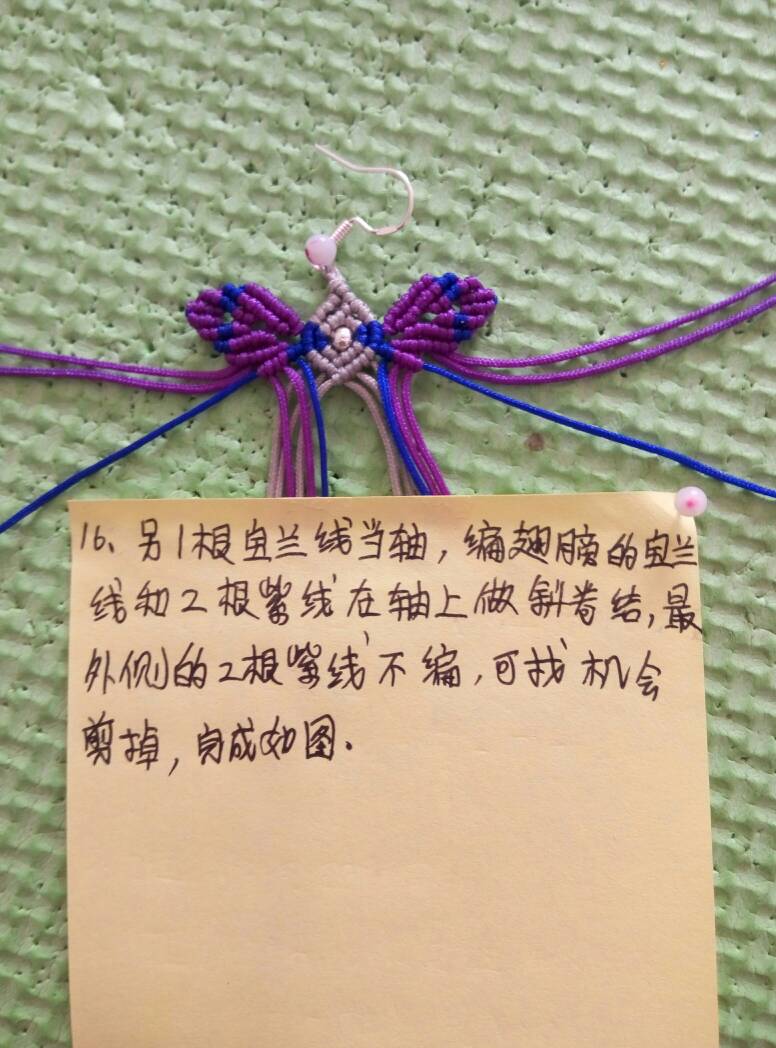 16、另1根宝兰线当轴，编翅膀的宝兰
线和2根紫线在轴上做斜卷结，最
外侧的2根紫线不编，可找机会
剪掉，完成如图.